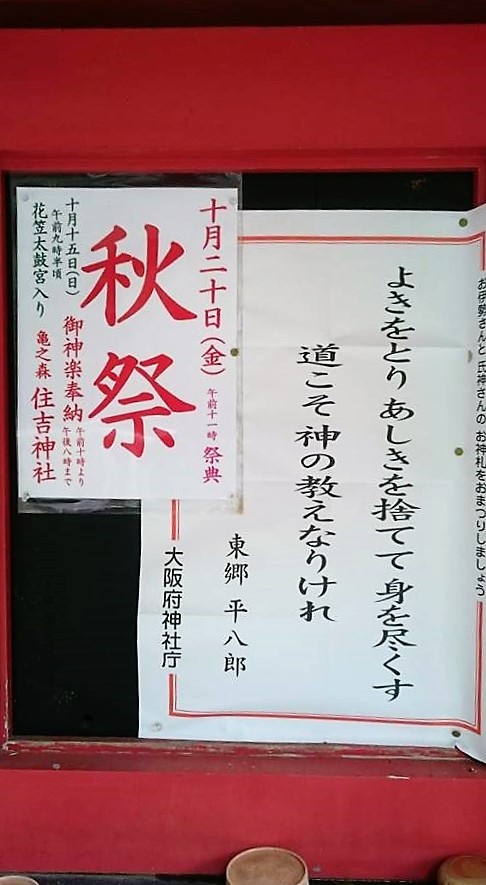 お伊勢さんと 氏神さんの お神札をおまつりしましょう
よきをとり あしきを捨てて 身を尽くす
道こそ 神の教えなりけれ
東郷 平八郎
大阪府神社庁
十月二十日(金)
午前十一時 祭典
秋祭
御神楽奉納
午前十時より
午後八時まで
十月十五日(日)
午前九時半頃
花笠太鼓宮入り
亀之森 住吉神社